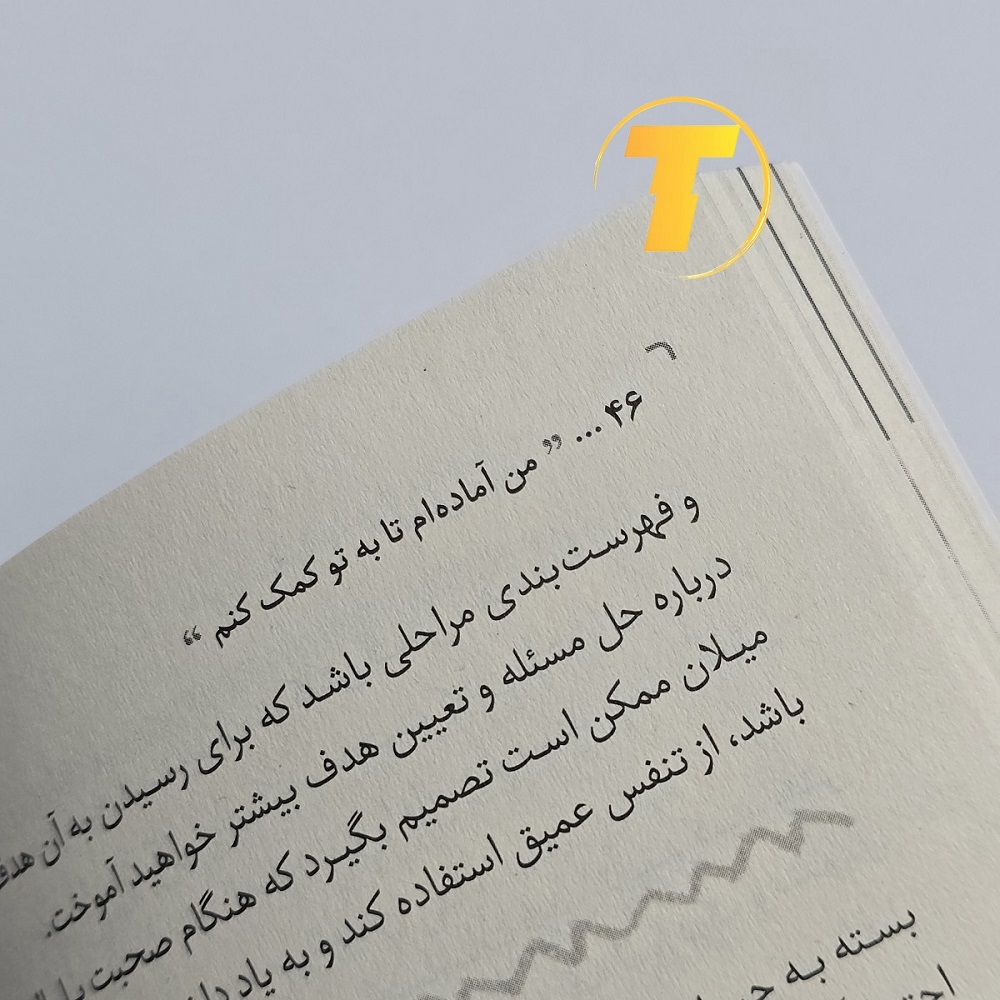 T
۴۶ ... ” من آماده‌ام تا به تو کمک کنم “
و فهرست‌بندی مراحلی باشد که برای رسیدن به آن هدف
درباره حل مسئله و تعیین هدف بیشتر خواهید آموخت.
میلان ممکن است تصمیم بگیرد که هنگام صحبت با
باشد، از تنفس عمیق استفاده کند و به یاد
بسته به